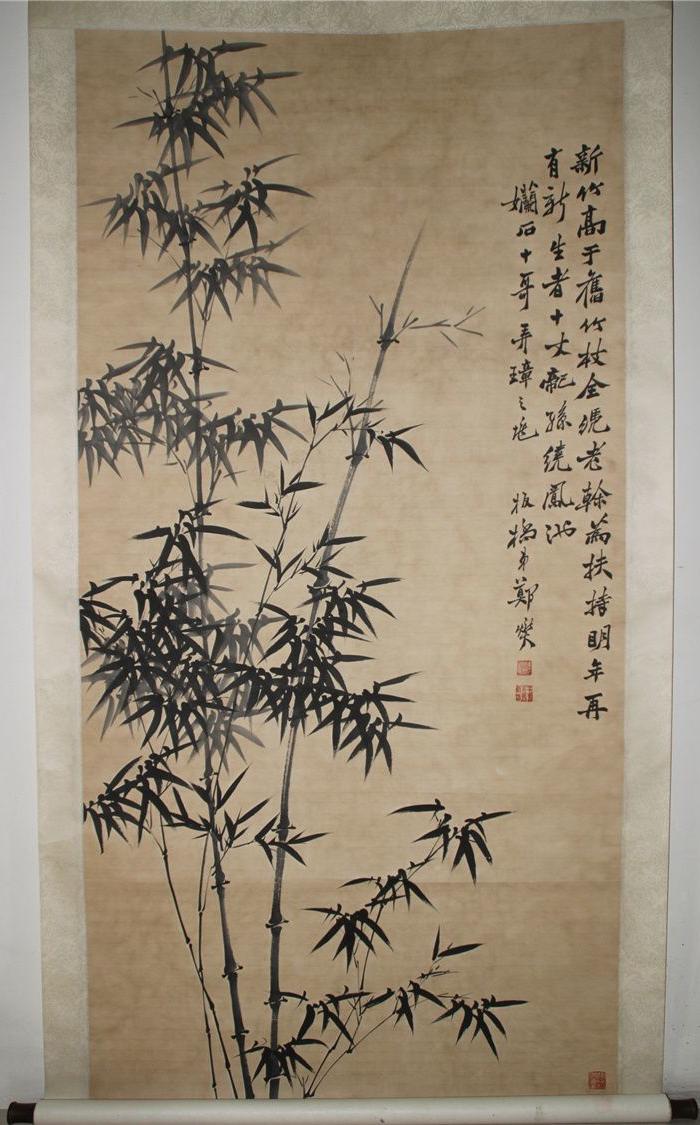 新竹高于舊竹枝全凭老榦為扶持明年再
有新生者十丈龍孫繞鳳池
孏石十哥弄璋之
板橋弟鄭燮